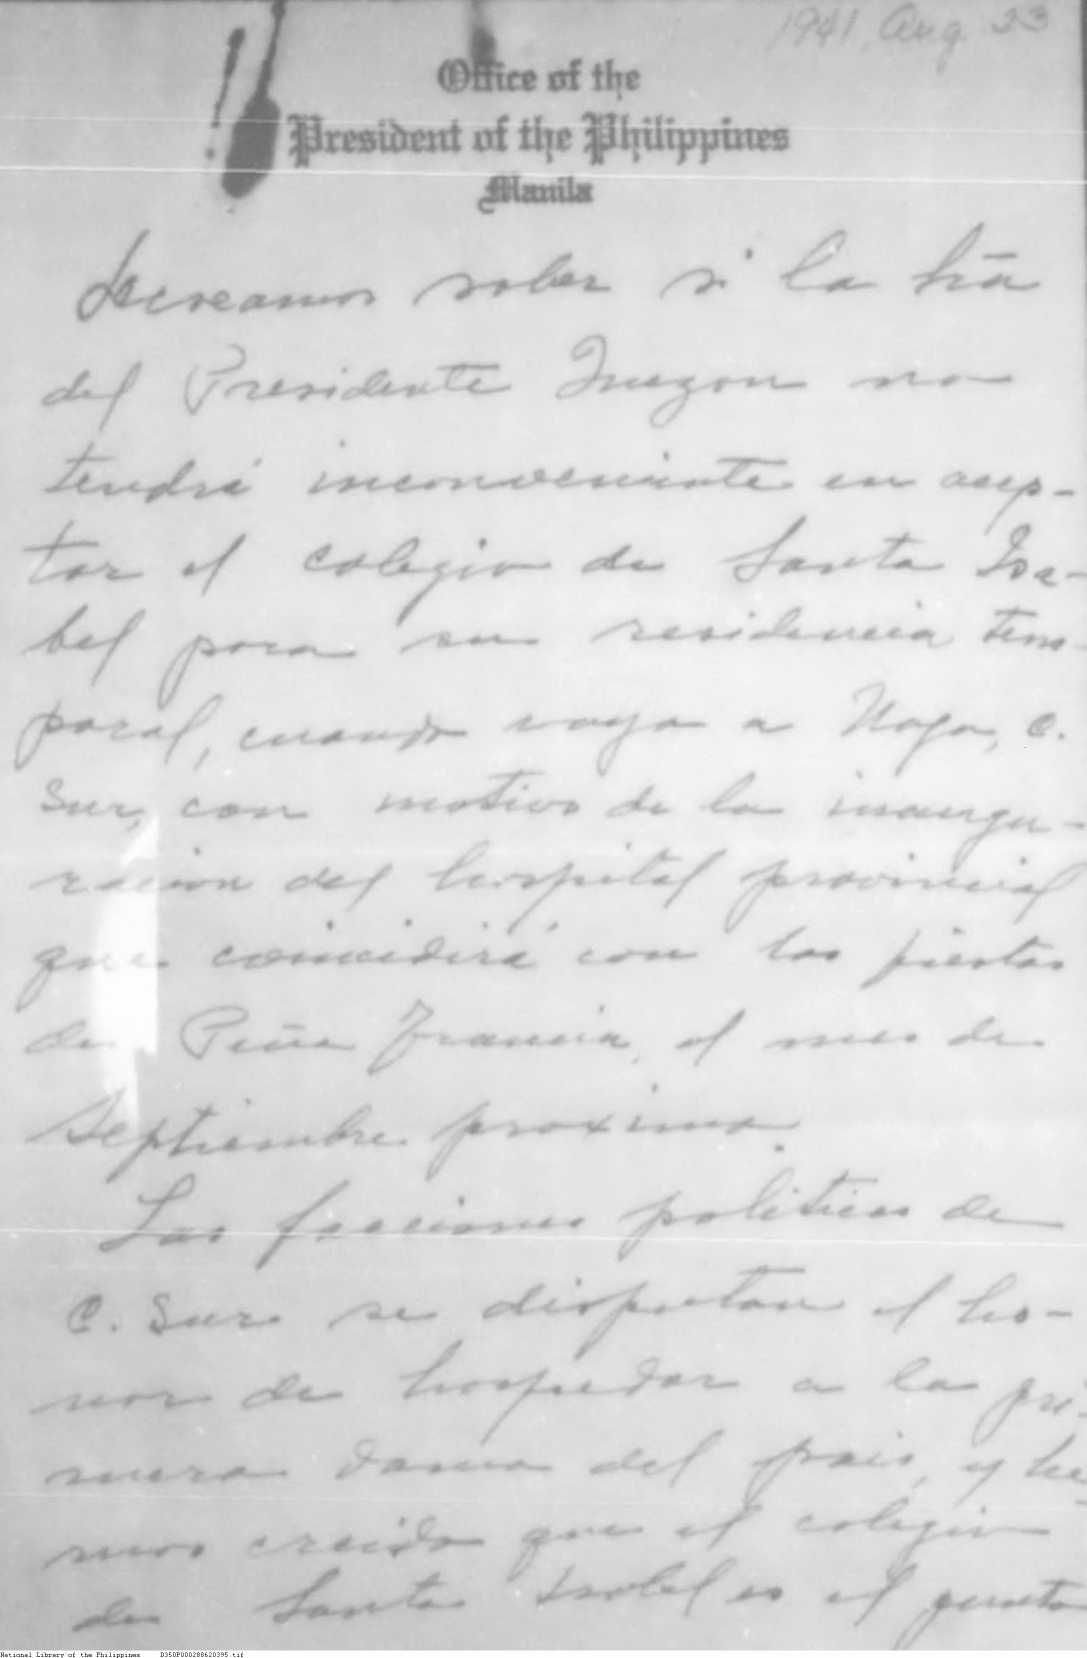 1941, Aug. 23
Office of the
President of the Philippines
Manila
Deseamos saber si la Sra
del Presidente Quezon no
tendrá inconveniente en acep-
tar el colegio de Santa Isa-
bel para su residencia tem-
poral, cuando vaya a Naga, C.
Sur, con motivo de la inaugu-
racion del hospital provincial
que coincidirá con las fiestas
de Peña Francia, el mes de
Septiembre proximo.
Las facciones politicas de
C. Sur se disputan el ho-
nor de hospedar a la pri-
mera dama del pais, y he-
mos creido que el colegio
de Santa Isabel es el punto
National Library of the Philippines D350P000288620395.tif